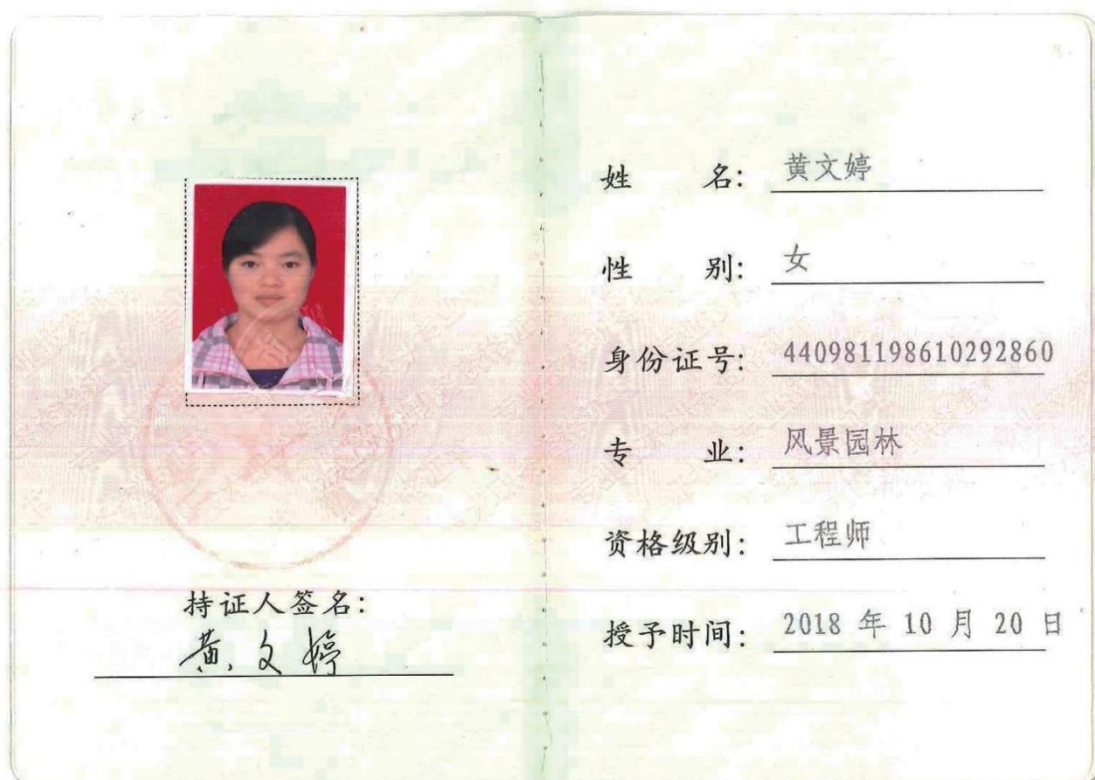 持证人签名：
黄文婷
姓名：黄文婷
性别：女
身份证号：440981198610292860
专业：风景园林
资格级别：工程师
授予时间：2018 年 10 月 20 日